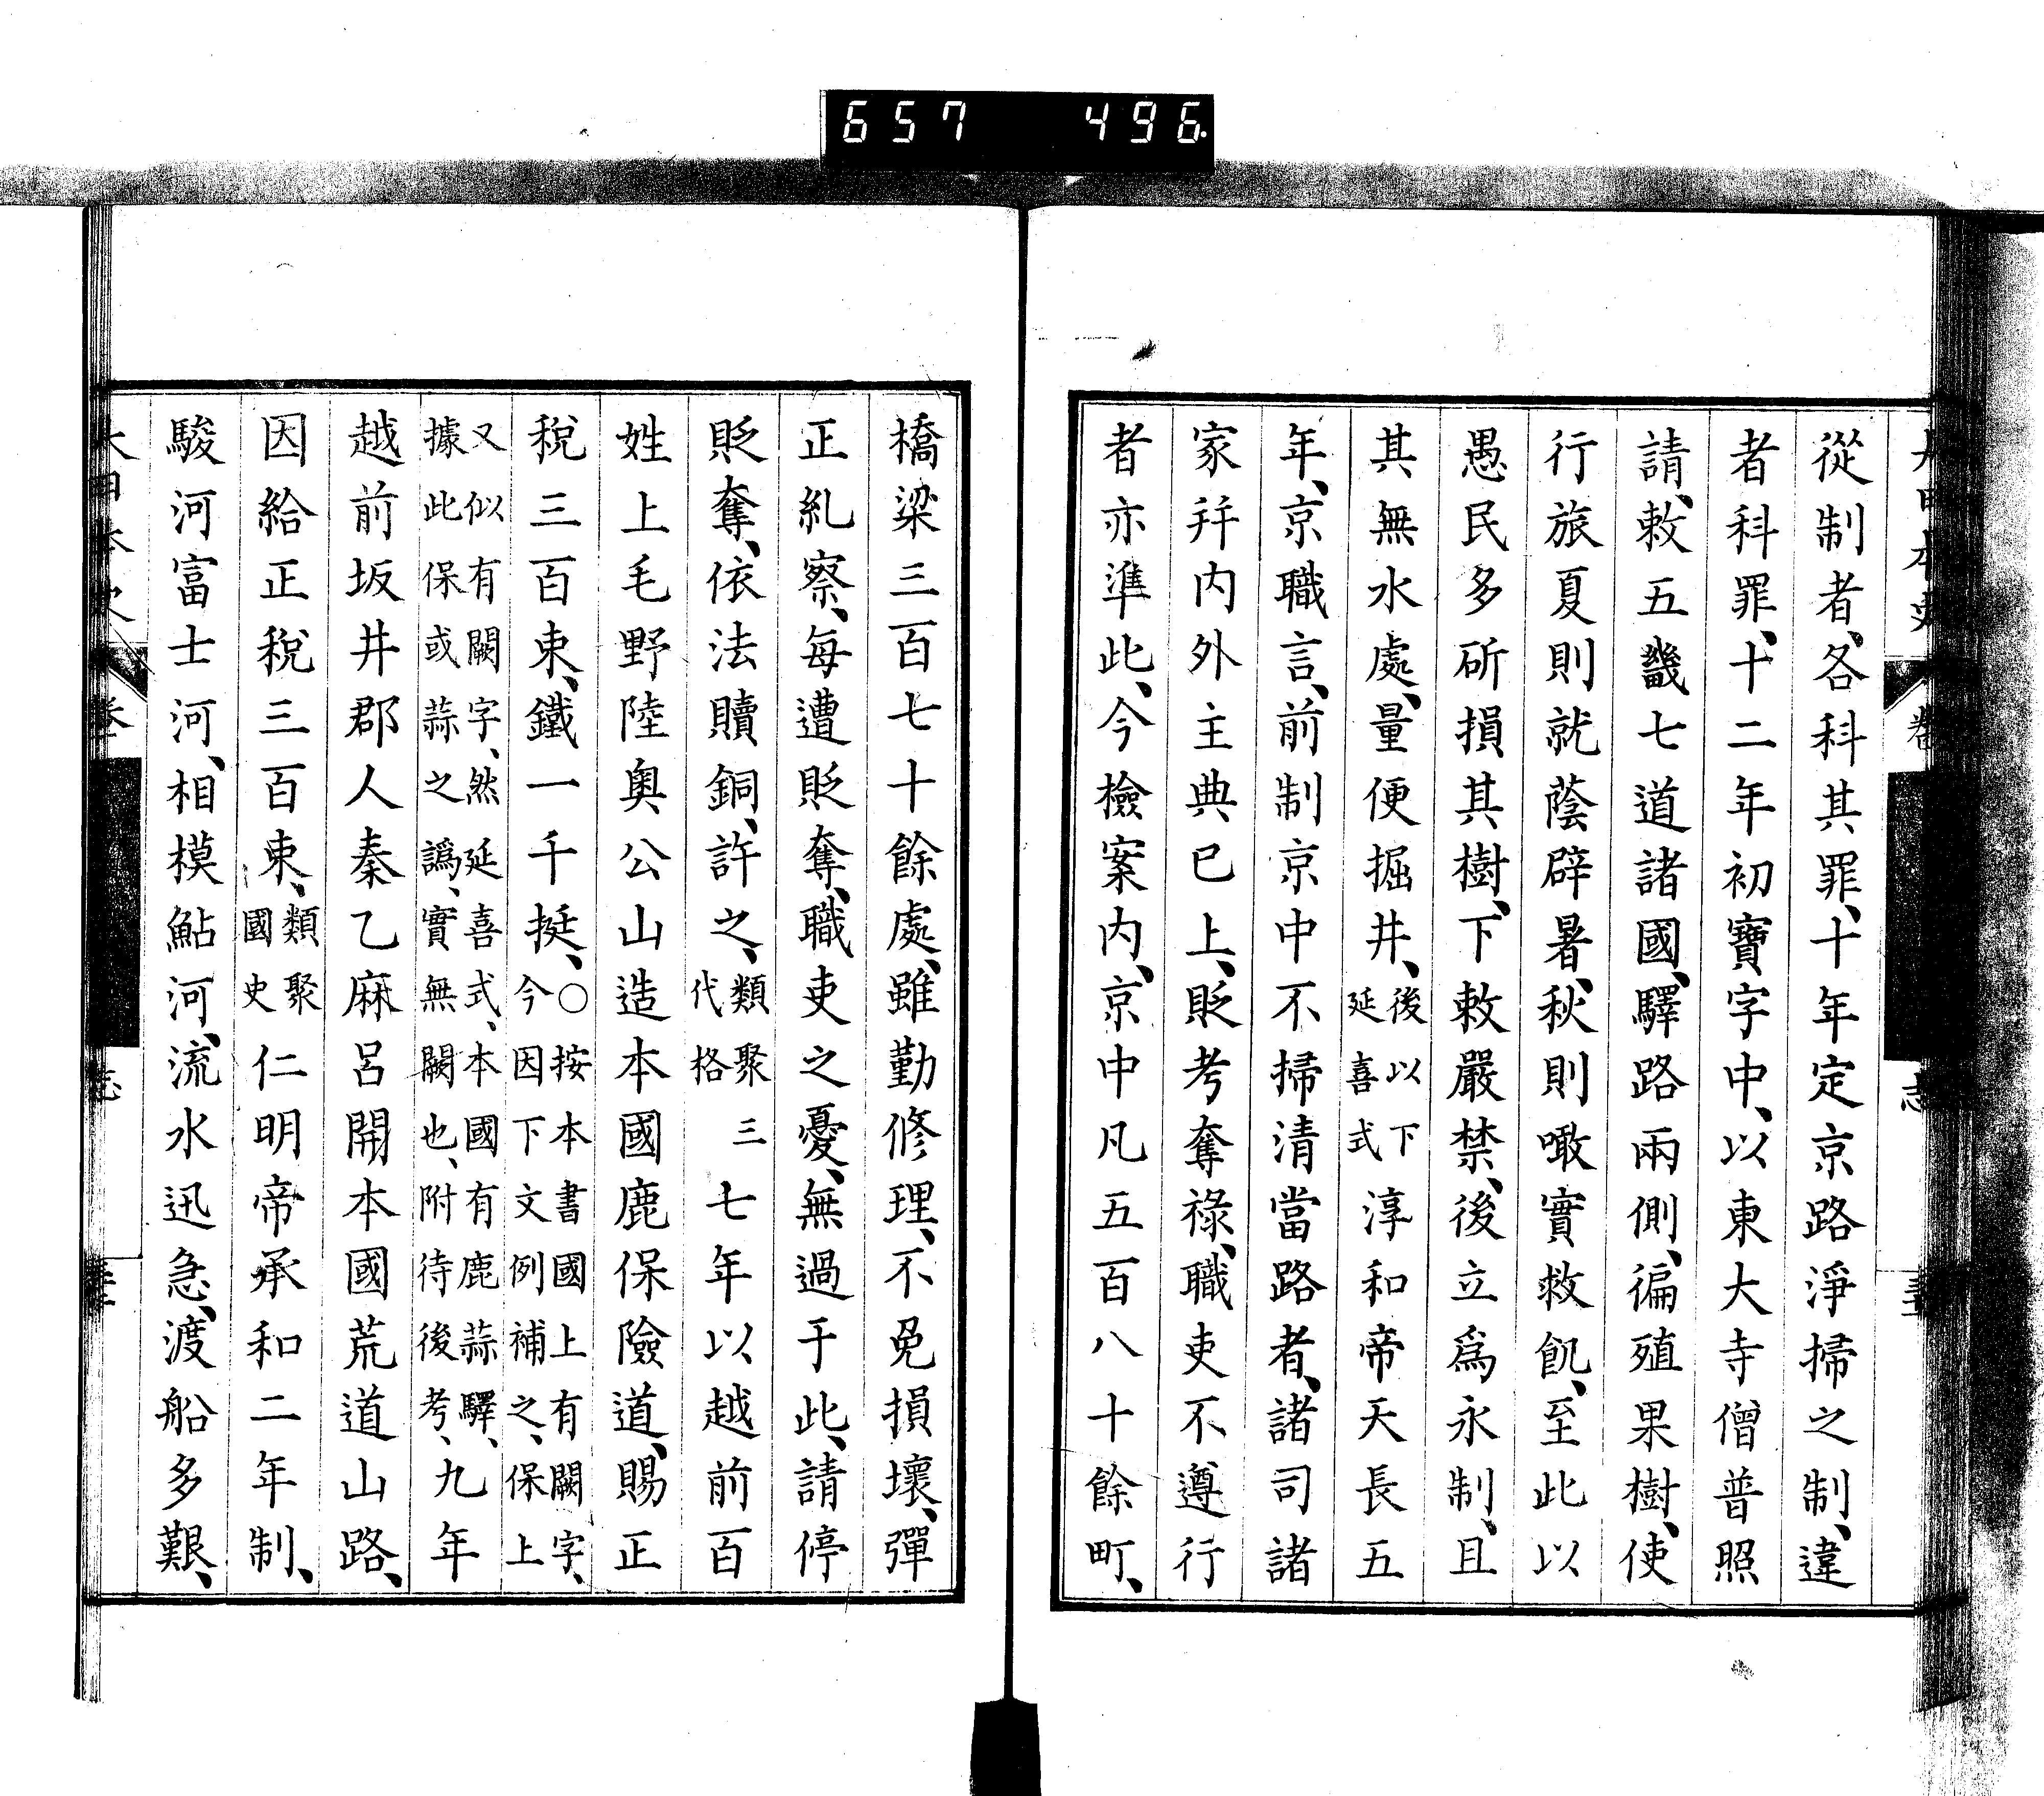 657 496
大日本史 卷 志
從制者、各科其罪、十年定京路淨掃之制、違
者科罪、十二年初寶字中、以東大寺僧普照
請、敕五畿七道諸國、驛路兩側、徧殖果樹、使
行旅夏則就蔭辟暑、秋則噉實救飢、至此以
愚民多斫損其樹、下敕嚴禁、後立爲永制、且
其無水處、量便掘井、後以下延喜式淳和帝天長五
年、京職言、前制京中不掃清當路者、諸司諸
家幷内外主典已上、貶考奪祿、職吏不遵行
者亦準此、今檢案内、京中凡五百八十餘町、
橋梁三百七十餘處、雖勤修理、不免損壞、彈
正糺察、每遭貶奪、職吏之憂、無過于此、請停
貶奪、依法贖銅、許之、類聚三代格七年以越前百
姓上毛野陸奧公山造本國鹿保險道、賜正
稅三百束、鐵一千挺、○按本書國上有闕字、今因下文例補之、保上
又似有闕字、然延喜式、本國有鹿蒜驛、據此保或蒜之譌、實無闕也、附待後考、九年
越前坂井郡人秦乙麻呂開本國荒道山路、
因給正稅三百束、類聚國史仁明帝承和二年制、
駿河富士河、相模鮎河、流水迅急、渡船多艱、
大日本史 卷 志